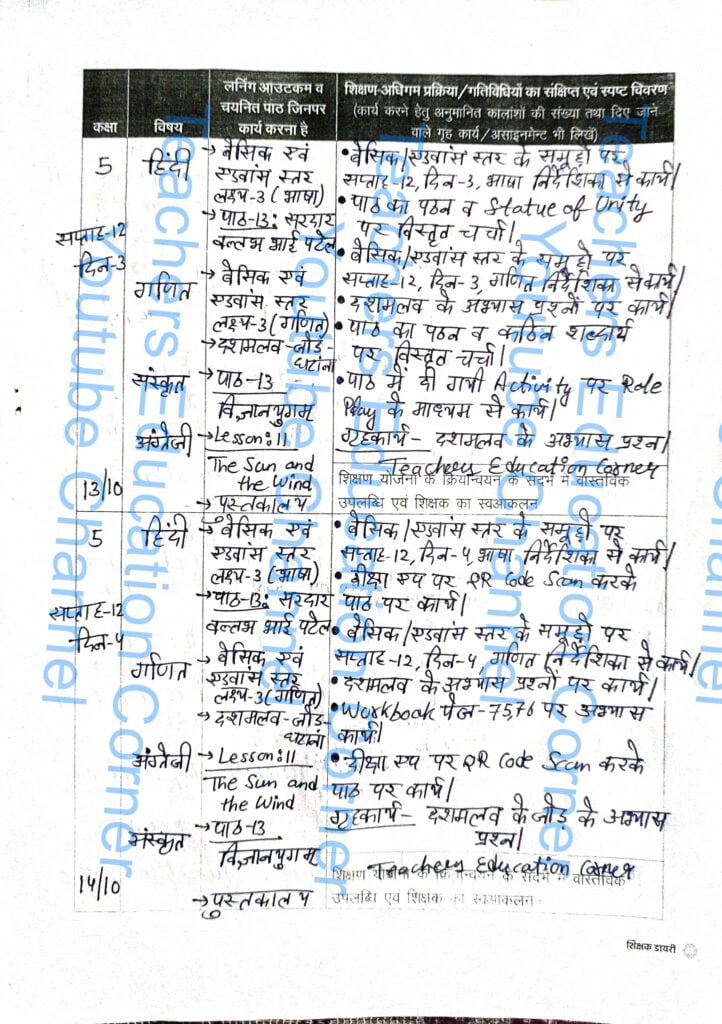 कक्षा
विषय
लर्निंग आउटकम व
चयनित पाठ जिनपर
कार्य करना है
शिक्षण-अधिगम प्रक्रिया/गतिविधियों का संक्षिप्त एवं स्पष्ट विवरण
(कार्य करने हेतु अनुमानित कालांशों की संख्या तथा दिए जाने
वाले गृह कार्य/असाइनमेन्ट भी लिखें)
5
सप्ताह-12
दिन-3
13/10
हिंदी
गणित
संस्कृत
अंग्रेजी
→ बेसिक एवं
एडवांस स्तर
लक्ष्य-3 (भाषा)
→ पाठ-13: सरदार
वल्लभ भाई पटेल
→ बेसिक एवं
एडवांस स्तर
लक्ष्य-3 (गणित)
→ दशमलव-जोड़-
घटाना
→ पाठ-13
विज्ञानयुगम्
→ Lesson:11
The Sun and
the Wind
→ पुस्तकालय
• बेसिक/एडवांस स्तर के समूहों पर
सप्ताह-12, दिन-3, भाषा निर्देशिका से कार्य।
• पाठ का पठन व Statue of Unity
पर विस्तृत चर्चा।
• बेसिक/एडवांस स्तर के समूहों पर
सप्ताह-12, दिन-3, गणित निर्देशिका से कार्य।
• दशमलव के अभ्यास प्रश्नों पर कार्य।
• पाठ का पठन व कठिन शब्दार्थ
पर विस्तृत चर्चा।
• पाठ में दी गयी Activity पर Role
Play के माध्यम से कार्य।
गृहकार्य- दशमलव के अभ्यास प्रश्न।
Teachers Education Corner
शिक्षण योजना के क्रियान्वयन के संदर्भ में वास्तविक
उपलब्धि एवं शिक्षक का स्वआकलन
5
सप्ताह-12
दिन-4
14/10
हिंदी
गणित
अंग्रेजी
संस्कृत
→ बेसिक एवं
एडवांस स्तर
लक्ष्य-3 (भाषा)
→ पाठ-13: सरदार
वल्लभ भाई पटेल
→ बेसिक एवं
एडवांस स्तर
लक्ष्य-3 (गणित)
→ दशमलव-जोड़-
घटाना
→ Lesson:11
The Sun and
the Wind
→ पाठ-13
विज्ञानयुगम्
→ पुस्तकालय
• बेसिक/एडवांस स्तर के समूहों पर
सप्ताह-12, दिन-4, भाषा निर्देशिका से कार्य।
• दीक्षा एप पर QR Code Scan करके
पाठ पर कार्य।
• बेसिक/एडवांस स्तर के समूहों पर
सप्ताह-12, दिन-4, गणित निर्देशिका से कार्य।
• दशमलव के अभ्यास प्रश्नों पर कार्य।
• Workbook पेज-75,76 पर अभ्यास
कार्य।
• दीक्षा एप पर QR Code Scan करके
पाठ पर कार्य।
गृहकार्य- दशमलव के जोड़ के अभ्यास
प्रश्न।
Teachers Education Corner
शिक्षण योजना के क्रियान्वयन के संदर्भ में वास्तविक
उपलब्धि एवं शिक्षक का स्वआकलन
शिक्षक डायरी
Teachers Education Corner
Youtube Channel
Teachers Education Corner
Youtube Channel
Teachers Education Corner
Youtube Channel